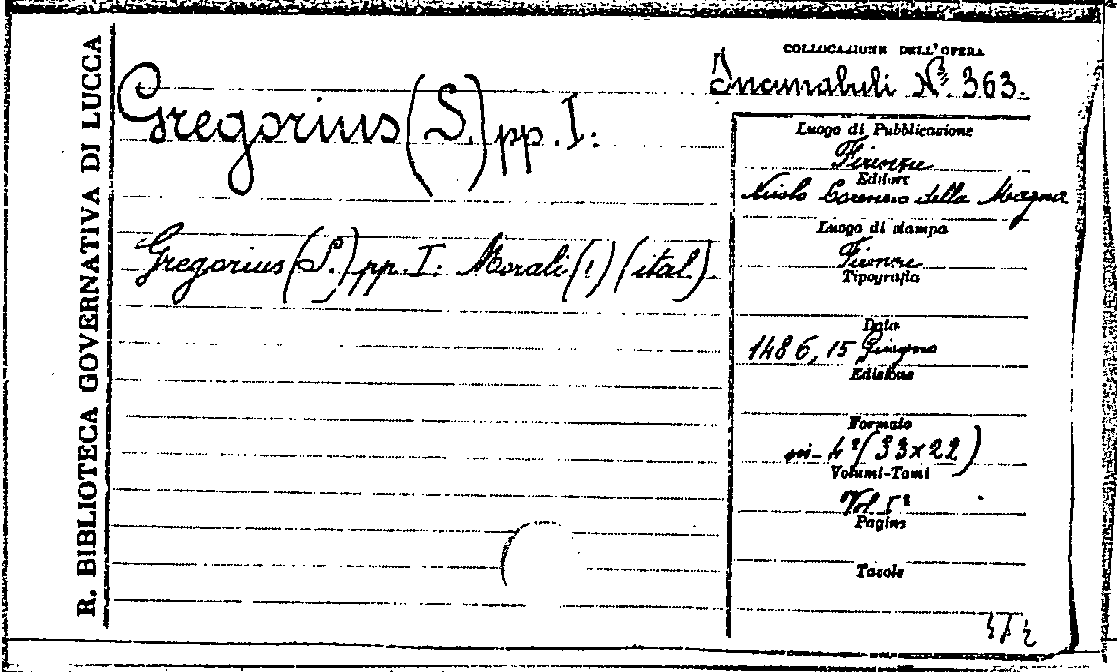 R. BIBLIOTECA GOVERNATIVA DI LUCCA
Gregorius (S.) pp. I.
Gregorius (S.) pp. I: Morali (!) (ital.)
COLLOCAZIONE DELL'OPERA
Incunabuli N° 363.
Luogo di Pubblicazione
Firenze
Editore
Nicolo Lorenzo della Magna
Luogo di stampa
Firenze
Tipografia
Data
1486, 15 Giugno
Edizione
Formato
in-4° (33×22)
Volumi-Tomi
Vol. 1°
Pagine
Tavole